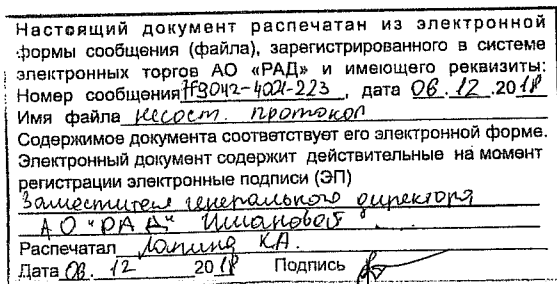 Настоящий документ распечатан из электронной
формы сообщения (файла), зарегистрированного в системе
электронных торгов АО «РАД» и имеющего реквизиты:
Номер сообщения 79042-4021-223, дата 06.12.2018
Имя файла несост. протокол
Содержимое документа соответствует его электронной форме.
Электронный документ содержит действительные на момент
регистрации электронные подписи (ЭП)
Заместителя генерального директора
АО "РАД" Ишановой
Распечатал Лапина К.А.
Дата 08.12 2018 Подпись